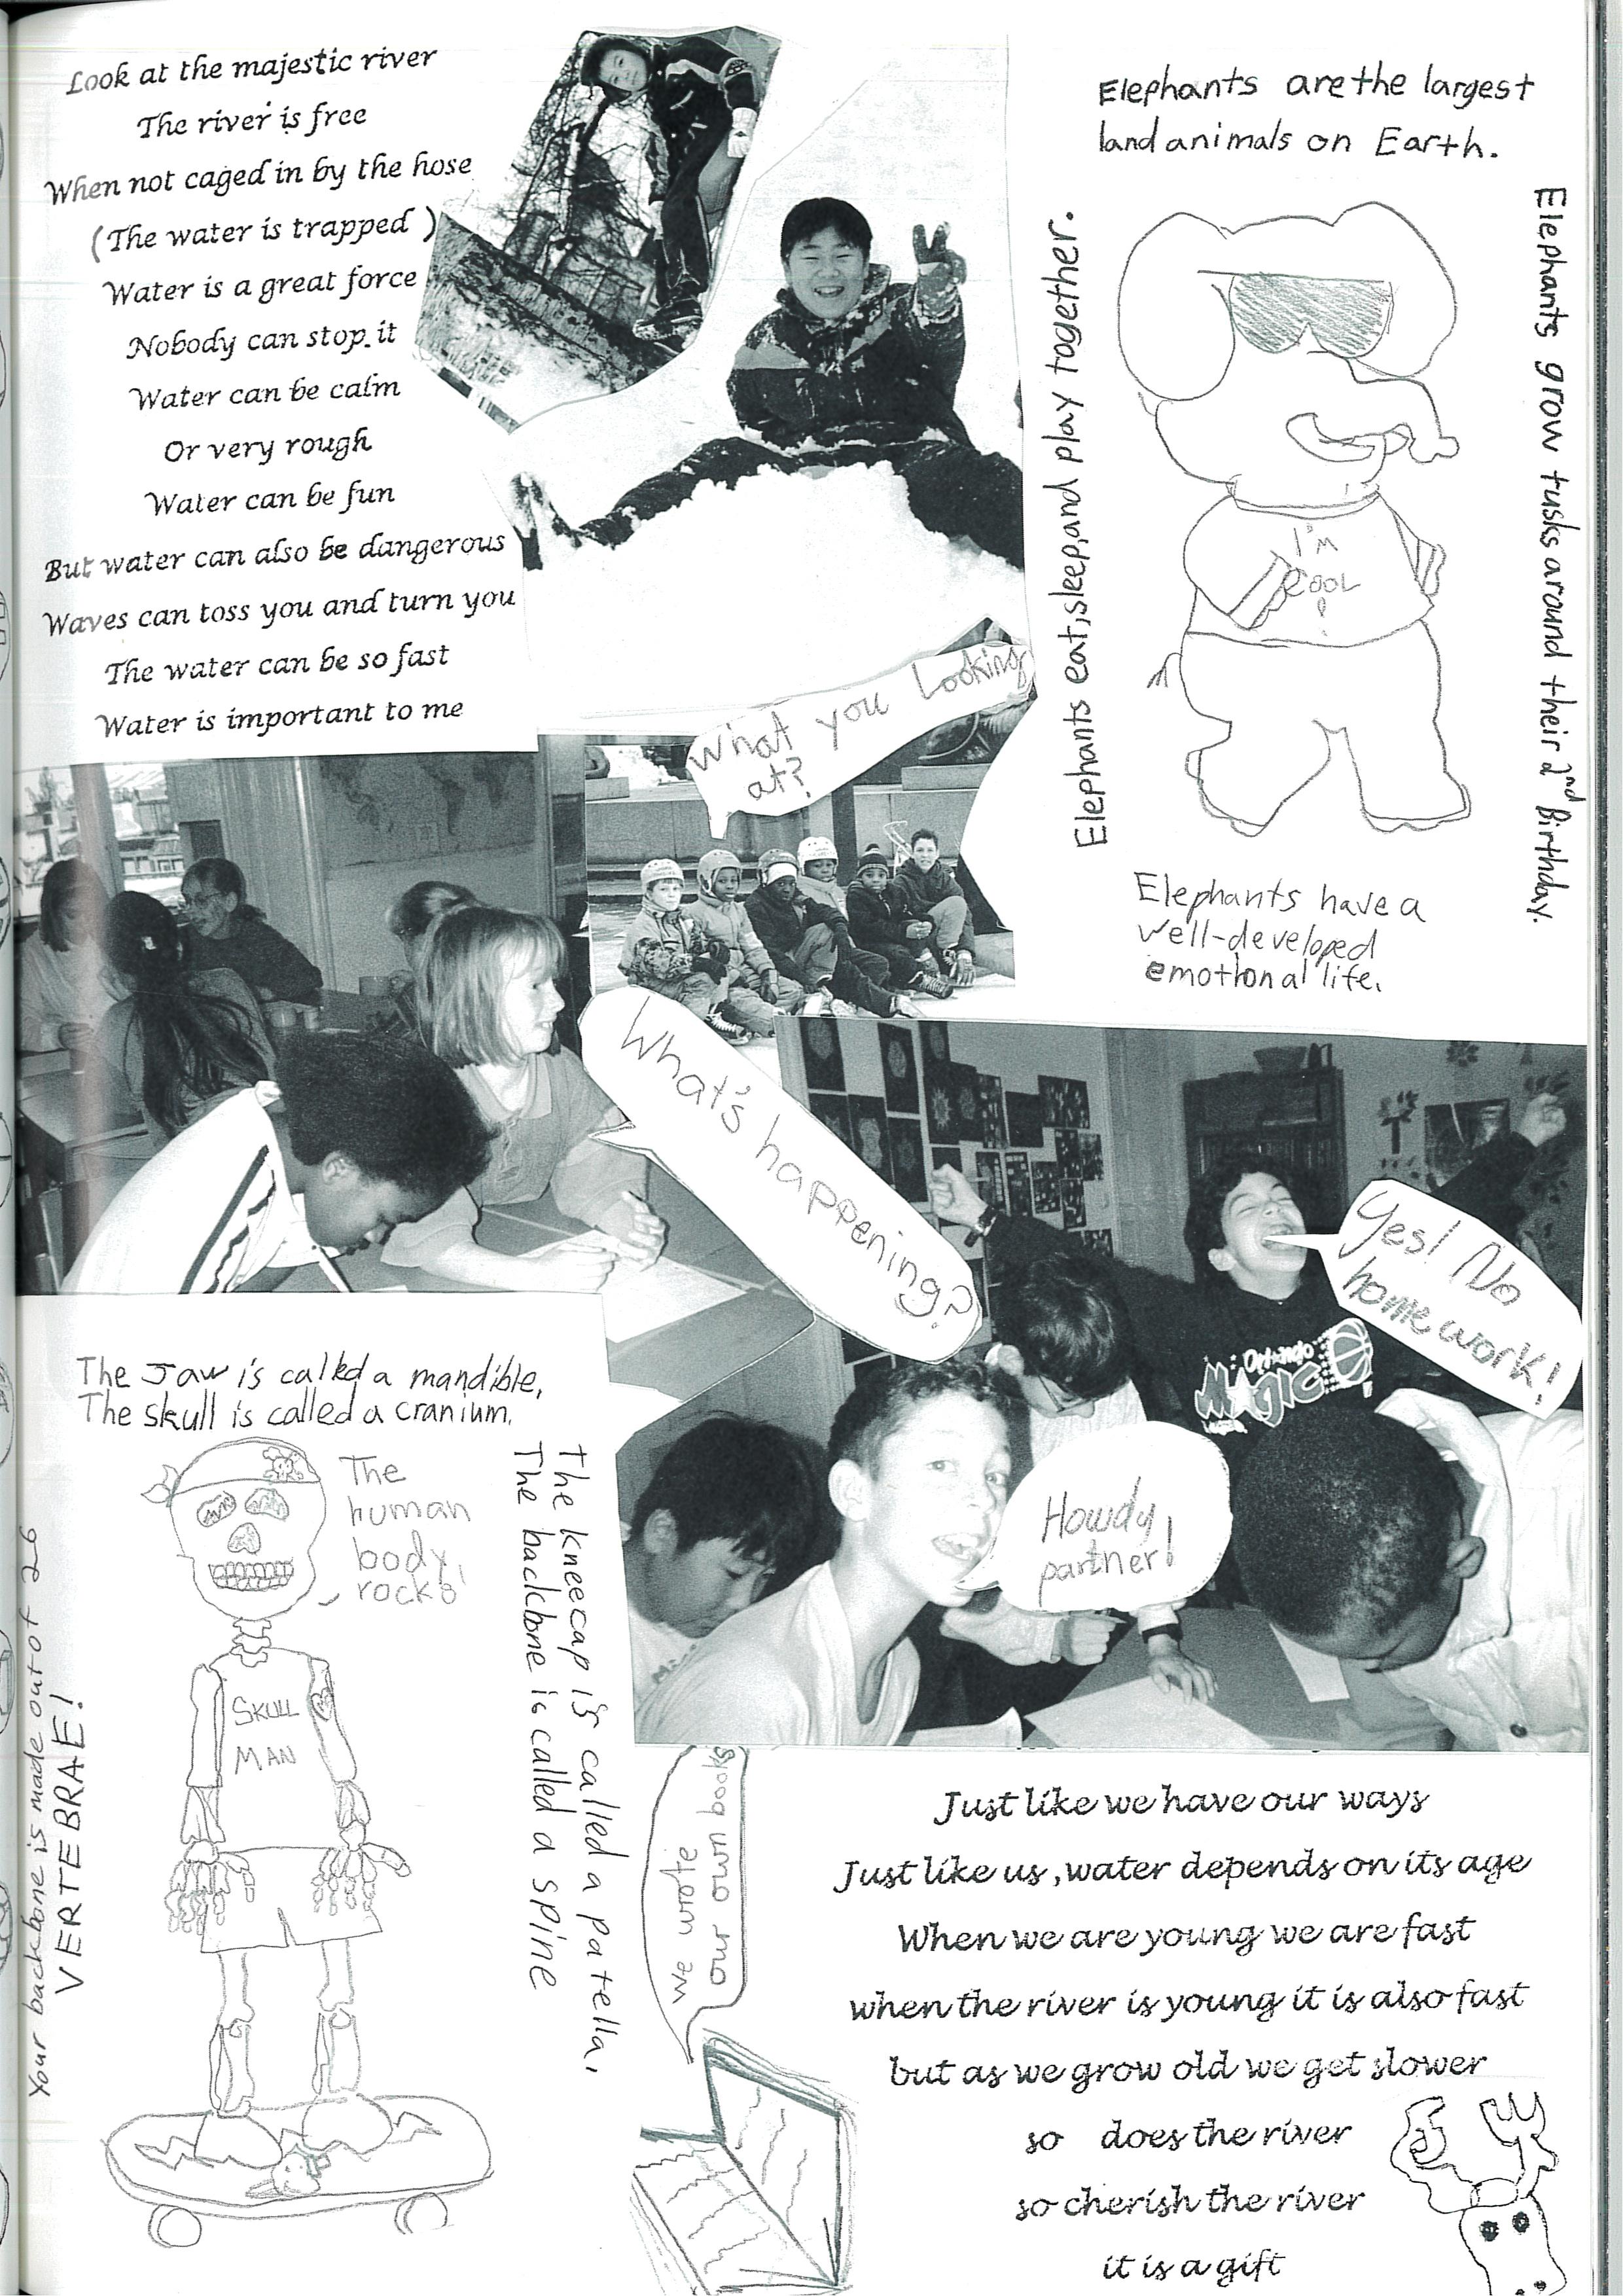 Look at the majestic river
The river is free
When not caged in by the hose
(The water is trapped )
Water is a great force
Nobody can stop it
Water can be calm
Or very rough
Water can be fun
But water can also be dangerous
Waves can toss you and turn you
The water can be so fast
Water is important to me
Elephants are the largest
land animals on Earth.
Elephants eat, sleep, and play together.
Elephants grow tusks around their 2nd Birthday.
I'M
COOL
!
Elephants have a
well-developed
emotional life.
What you Looking
at?
What's happening?
Yes! No
homework!
Orlando
MAGIC
Howdy,
partner!
The Jaw is called a mandible,
The skull is called a cranium.
The
human
body
rocks!
The kneecap is called a patella,
The backbone is called a spine
SKULL
MAN
Your backbone is made out of 26
VERTEBRAE!
We wrote
our own books
Just like we have our ways
Just like us ,water depends on its age
When we are young we are fast
when the river is young it is also fast
but as we grow old we get slower
so does the river
so cherish the river
it is a gift